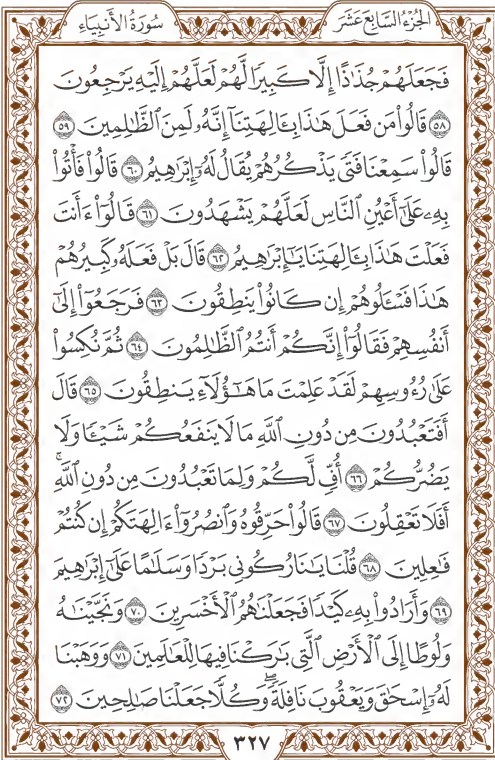 الجزء السابع عشر
سورة الأنبياء
فَجَعَلَهُمْ جُذَٰذًا إِلَّا كَبِيرًا لَّهُمْ لَعَلَّهُمْ إِلَيْهِ يَرْجِعُونَ
٥٨ قَالُوا۟ مَن فَعَلَ هَـٰذَا بِـَٔالِهَتِنَآ إِنَّهُۥ لَمِنَ ٱلظَّـٰلِمِينَ ٥٩
قَالُوا۟ سَمِعْنَا فَتًى يَذْكُرُهُمْ يُقَالُ لَهُۥٓ إِبْرَٰهِيمُ ٦٠ قَالُوا۟ فَأْتُوا۟
بِهِۦ عَلَىٰٓ أَعْيُنِ ٱلنَّاسِ لَعَلَّهُمْ يَشْهَدُونَ ٦١ قَالُوٓا۟ ءَأَنتَ
فَعَلْتَ هَـٰذَا بِـَٔالِهَتِنَا يَـٰٓإِبْرَٰهِيمُ ٦٢ قَالَ بَلْ فَعَلَهُۥ كَبِيرُهُمْ
هَـٰذَا فَسْـَٔلُوهُمْ إِن كَانُوا۟ يَنطِقُونَ ٦٣ فَرَجَعُوٓا۟ إِلَىٰٓ
أَنفُسِهِمْ فَقَالُوٓا۟ إِنَّكُمْ أَنتُمُ ٱلظَّـٰلِمُونَ ٦٤ ثُمَّ نُكِسُوا۟
عَلَىٰ رُءُوسِهِمْ لَقَدْ عَلِمْتَ مَا هَـٰٓؤُلَآءِ يَنطِقُونَ ٦٥ قَالَ
أَفَتَعْبُدُونَ مِن دُونِ ٱللَّهِ مَا لَا يَنفَعُكُمْ شَيْـًٔا وَلَا
يَضُرُّكُمْ ٦٦ أُفٍّ لَّكُمْ وَلِمَا تَعْبُدُونَ مِن دُونِ ٱللَّهِ ۖ
أَفَلَا تَعْقِلُونَ ٦٧ قَالُوا۟ حَرِّقُوهُ وَٱنصُرُوٓا۟ ءَالِهَتَكُمْ إِن كُنتُمْ
فَـٰعِلِينَ ٦٨ قُلْنَا يَـٰنَارُ كُونِى بَرْدًا وَسَلَـٰمًا عَلَىٰٓ إِبْرَٰهِيمَ
٦٩ وَأَرَادُوا۟ بِهِۦ كَيْدًا فَجَعَلْنَـٰهُمُ ٱلْأَخْسَرِينَ ٧٠ وَنَجَّيْنَـٰهُ
وَلُوطًا إِلَى ٱلْأَرْضِ ٱلَّتِى بَـٰرَكْنَا فِيهَا لِلْعَـٰلَمِينَ ٧١ وَوَهَبْنَا
لَهُۥٓ إِسْحَـٰقَ وَيَعْقُوبَ نَافِلَةً ۖ وَكُلًّا جَعَلْنَا صَـٰلِحِينَ ٧٢
٣٢٧